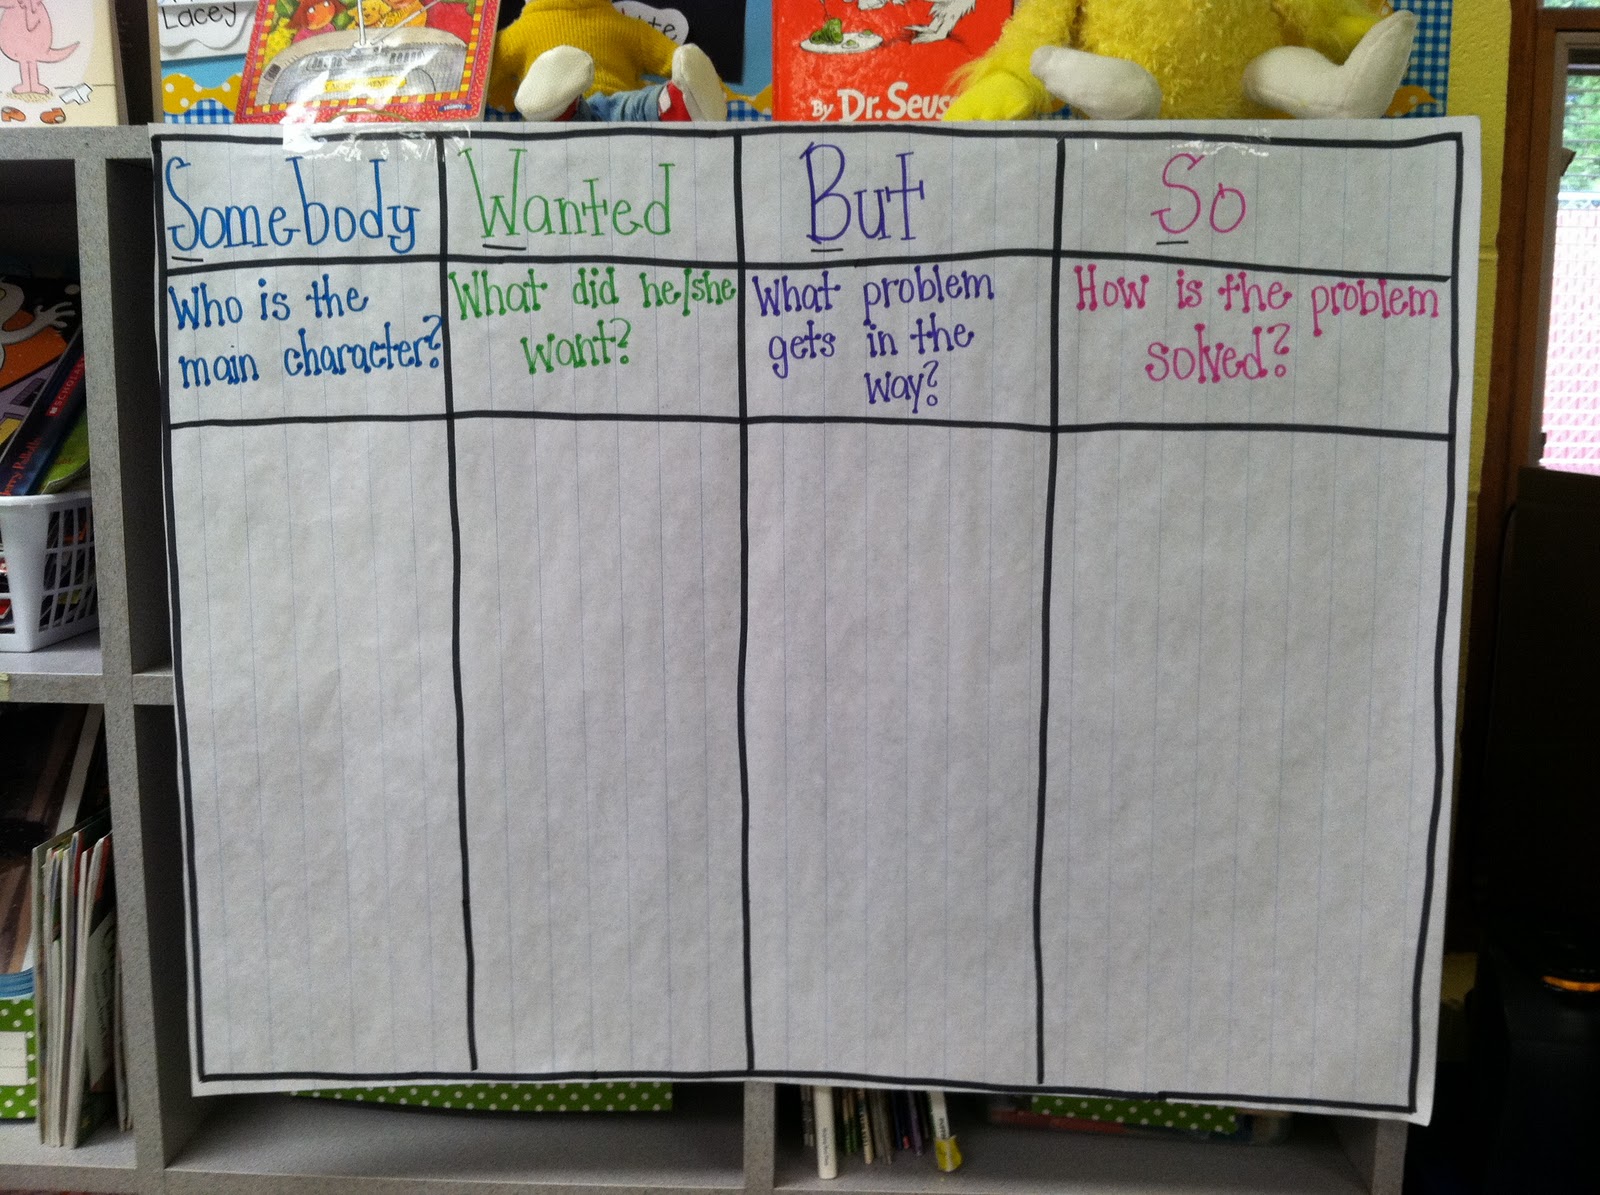 Lacey
By Dr. Seuss
Somebody
Wanted
But
So
Who is the
main character?
What did he/she
want?
What problem
gets in the
way?
How is the problem
solved?
SCHOLAS